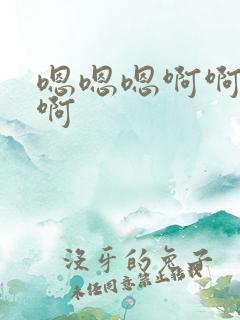 嗯嗯嗯啊啊
啊
没牙的兔子
未经同意禁止转载